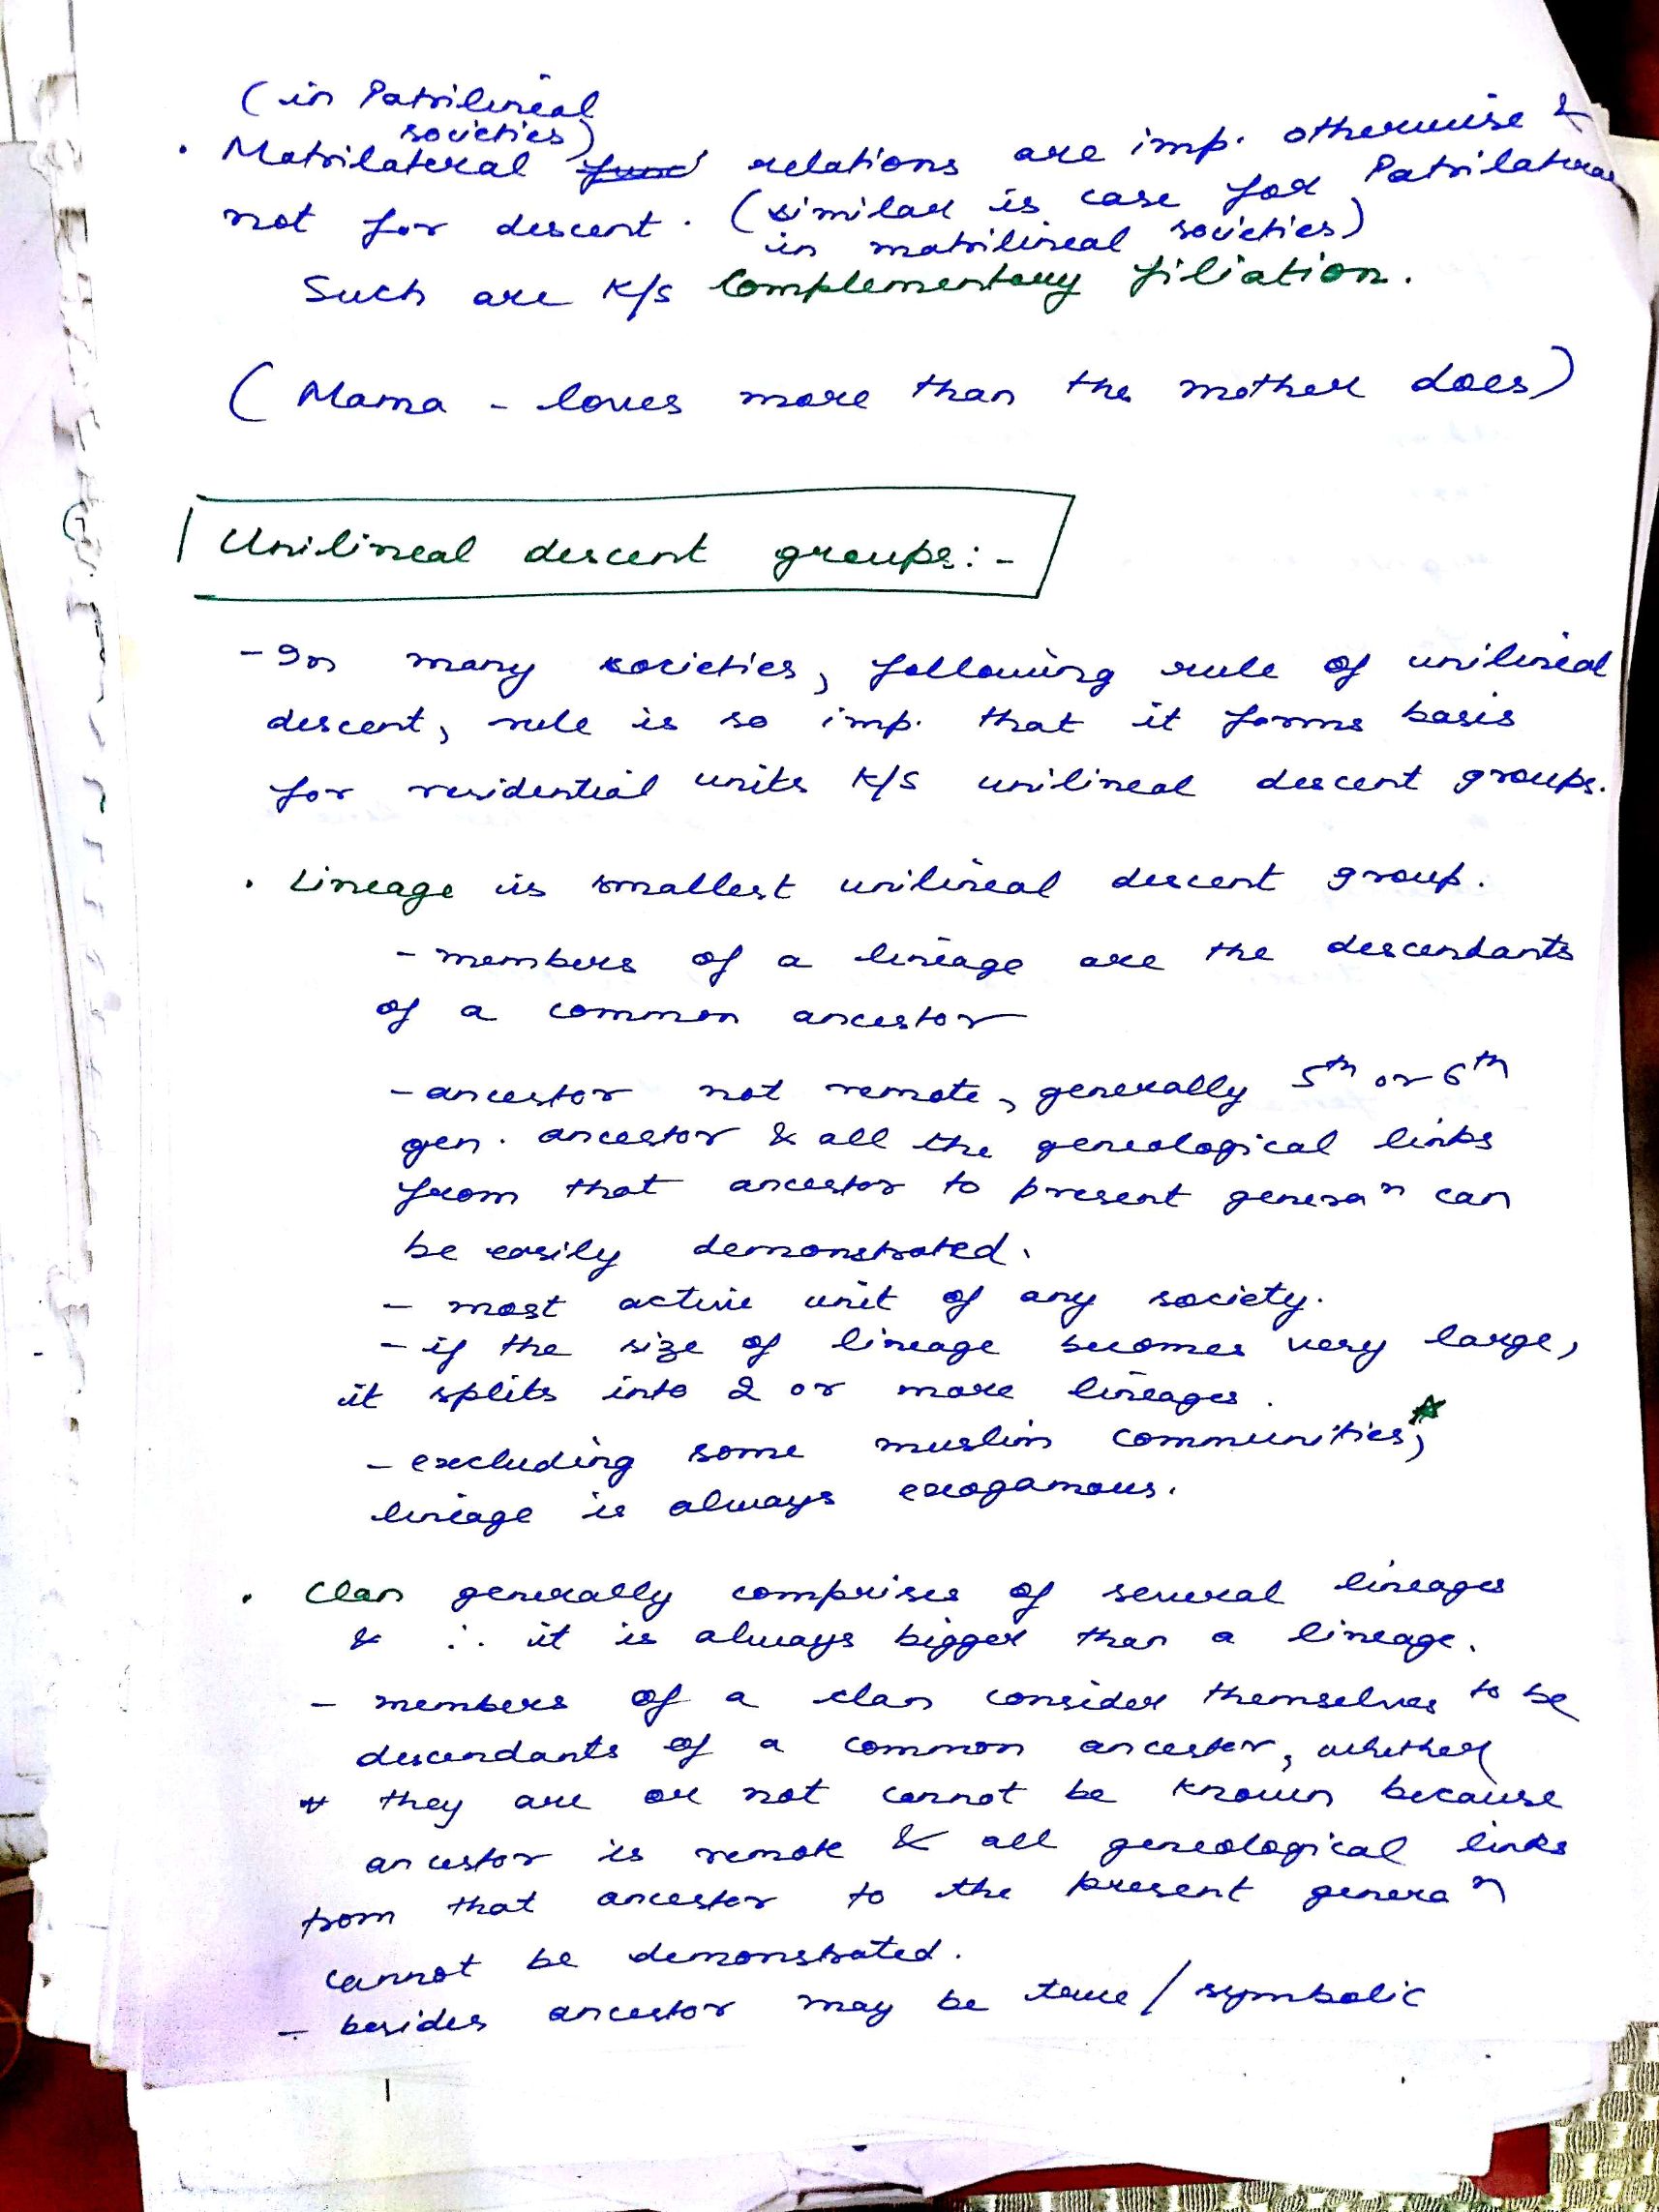 (in Patrilineal
societies)
. Matrilateral func relations are imp. otherwise &
not for descent. (similar is case for Patrilateral
in matrilineal societies)
Such are k/s Complementary filiation.
(Mama - loves more than the mother does)
Unilineal descent groups:-
- In many societies, following rule of unilineal
descent, rule is so imp. that it forms basis
for residential units k/s unilineal descent groups.
. Lineage is smallest unilineal descent group.
- members of a lineage are the descendants
of a common ancestor
- ancestor not remote, generally 5th or 6th
gen. ancestor & all the geneological links
from that ancestor to present generan can
be easily demonstrated.
- most active unit of any society.
- if the size of lineage becomes very large,
it splits into 2 or more lineages.
- excluding some muslim communities,
lineage is always exogamous.
. Clan generally comprises of several lineages
& ∴ it is always bigger than a lineage.
- members of a clan consider themselves to be
descendants of a common ancestor, whether
they are or not cannot be known because
ancestor is remote & all geneological links
from that ancestor to the present generan
cannot be demonstrated.
- besides ancestor may be true / symbolic